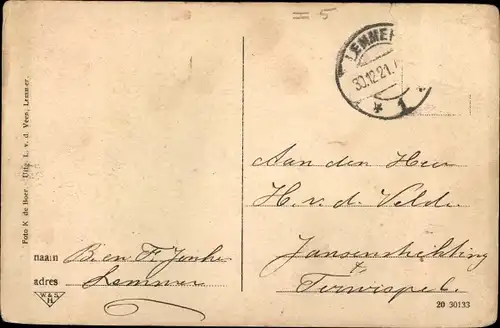 = 5
LEMMER
30.12.21.
* 1 *
Foto K. de Boer - Uitg. L. v. d. Veen, Lemmer.
Aan den Heer
H. v. d. Velde.
Jansenstichting
te
Terwispel.
naam B. en F. Jonke
adres Lemmer
W&S
H
20 30133